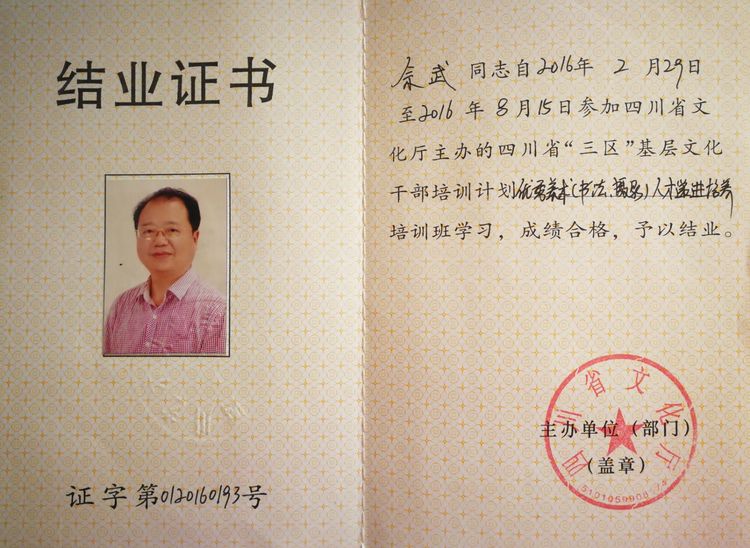 结业证书
证字第0120160193号
余武 同志自2016年 2 月29日
至2016 年 8 月15日参加四川省文
化厅主办的四川省“三区”基层文化
干部培训计划优秀美术(书法、摄影)人才递进培养
培训班学习，成绩合格，予以结业。
四川省文化厅
主办单位（部门）
（盖章）